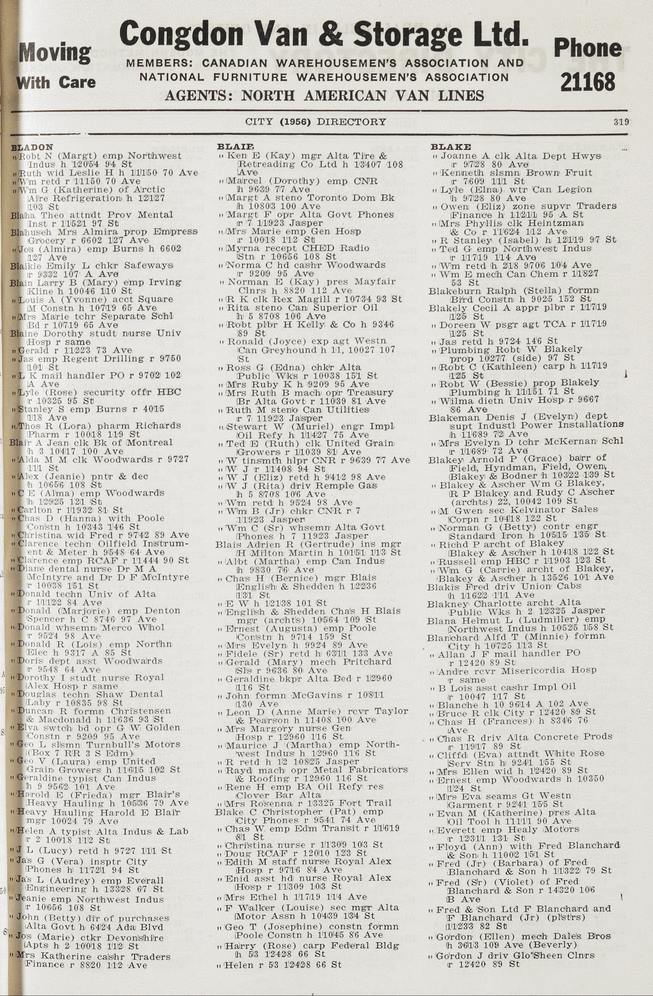 Moving
With Care
Congdon Van & Storage Ltd.
MEMBERS: CANADIAN WAREHOUSEMEN'S ASSOCIATION AND
NATIONAL FURNITURE WAREHOUSEMEN'S ASSOCIATION
AGENTS: NORTH AMERICAN VAN LINES
Phone
21168
CITY (1956) DIRECTORY
319
BLADON
" Robt N (Margt) emp Northwest
Indus h 12054 94 St
" Ruth wid Leslie H h 11150 70 Ave
" Wm retd r 11150 70 Ave
" Wm G (Katherine) of Arctic
Aire Refrigeration h 12127
103 St
Blaha Theo attndt Prov Mental
Inst r 11521 97 St
Blahusch Mrs Almira prop Empress
Grocery r 6602 127 Ave
" Jos (Almira) emp Burns h 6602
127 Ave
Blaikie Emily L chkr Safeways
r 9332 107 A Ave
Blain Larry B (Mary) emp Irving
Kline h 10046 110 St
" Louis A (Yvonne) acct Square
M Constn h 10719 65 Ave
" Mrs Marie tchr Separate Schl
Bd r 10719 65 Ave
Blaine Dorothy studt nurse Univ
Hosp r same
" Gerald r 11223 73 Ave
" Jas emp Regent Drilling r 9750
101 St
" L K mail handler PO r 9702 102
A Ave
" Lyle (Rose) security offr HBC
r 10325 95 St
" Stanley S emp Burns r 4015
118 Ave
" Thos R (Lora) pharm Richards
Pharm r 10018 119 St
Blair A Jean clk Bk of Montreal
h 3 10417 100 Ave
" Alda M M clk Woodwards r 9727
111 St
" Alex (Jeanie) pntr & dec
h 10656 108 St
" C E (Alma) emp Woodwards
h 12925 121 St
" Carlton r 11932 81 St
" Chas D (Hanna) with Poole
Constn h 10343 146 St
" Christina wid Fred r 9742 89 Ave
" Clarence techn Oilfield Instrum-
ent & Meter h 9548 64 Ave
" Clarence emp RCAF r 11444 90 St
" Diane dental nurse Dr M A
McIntyre and Dr D F McIntyre
r 10038 151 St
" Donald techn Univ of Alta
r 11122 84 Ave
" Donald (Marjorie) emp Denton
Spencer h C 8746 97 Ave
" Donald whsemn Merco Whol
r 9524 98 Ave
" Donald R (Lois) emp Northn
Elec h 9317 A 85 St
" Doris dept asst Woodwards
r 9548 64 Ave
" Dorothy I studt nurse Royal
Alex Hosp r same
" Douglas techn Shaw Dental
Laby r 10835 98 St
" Duncan R formn Christensen
& Macdonald h 11636 93 St
" Elva swtch bd opr G W Golden
Constn r 9209 95 Ave
" Geo L slsmn Turnbull's Motors
(Box 7 RR 3 S Edm)
" Geo V (Laura) emp United
Grain Growers h 11615 102 St
" Geraldine typist Can Indus
h 9 9562 101 Ave
" Harold E (Frieda) mgr Blair's
Heavy Hauling h 10536 79 Ave
" Heavy Hauling Harold E Blair
mgr 10024 79 Ave
" Helen A typist Alta Indus & Lab
r 2 10018 112 St
" J L (Lucy) retd h 9727 111 St
" Jas G (Vera) insptr City
Phones h 11721 94 St
" Jas L (Audrey) emp Everall
Engineering h 13328 67 St
" Jeanie emp Northwest Indus
r 10656 108 St
" John (Betty) dir of purchases
Alta Govt h 6424 Ada Blvd
" Jos (Marie) ctkr Devonshire
Apts h 2 10018 112 St
" Mrs Katherine cashr Traders
Finance r 8820 112 Ave
BLAIR
" Ken E (Kay) mgr Alta Tire &
Retreading Co Ltd h 13407 108
Ave
" Marcel (Dorothy) emp CNR
h 9639 77 Ave
" Margt A steno Toronto Dom Bk
h 10803 100 Ave
" Margt F opr Alta Govt Phones
r 7 11923 Jasper
" Mrs Marie emp Gen Hosp
r 10018 112 St
" Myrna recept CHED Radio
Stn r 10656 108 St
" Norma C hd cashr Woodwards
r 9209 95 Ave
" Norman E (Kay) pres Mayfair
Clnrs h 8820 112 Ave
" R K clk Rex Magill r 10734 93 St
" Rita steno Can Superior Oil
h 5 8708 106 Ave
" Robt plbr H Kelly & Co h 9346
89 St
" Ronald (Joyce) exp agt Westn
Can Greyhound h 11, 10027 107
St
" Ross G (Edna) chkr Alta
Public Wks r 10038 151 St
" Mrs Ruby K h 9209 95 Ave
" Mrs Ruth B mach opr Treasury
Br Alta Govt r 11039 81 Ave
" Ruth M steno Can Utilities
r 7 11923 Jasper
" Stewart W (Muriel) engr Impl
Oil Refy h 11427 75 Ave
" Ted E (Ruth) clk United Grain
Growers r 11039 81 Ave
" W tinsmth hlpr CNR r 9639 77 Ave
" W J r 11408 94 St
" W J (Eliz) retd h 9412 98 Ave
" W J (Rita) driv Remple Gas
h 5 8708 106 Ave
" Wm retd h 9524 98 Ave
" Wm B (Jr) chkr CNR r 7
11923 Jasper
" Wm C (Sr) whsemn Alta Govt
Phones h 7 11923 Jasper
Blais Adrien R (Gertrude) ins mgr
H Milton Martin h 10151 113 St
" Albt (Martha) emp Can Indus
h 9830 76 Ave
" Chas H (Bernice) mgr Blais
English & Shedden h 12236
131 St
" E W h 12138 101 St
" English & Shedden Chas H Blais
mgr (archts) 10564 109 St
" Ernest (Augusta) emp Poole
Constn h 9714 159 St
" Mrs Evelyn h 9924 89 Ave
" Fidele (Sr) retd h 6311 133 Ave
" Gerald (Mary) mech Pritchard
Sls r 9636 80 Ave
" Geraldine bkpr Alta Bed r 12960
116 St
" John formn McGavins r 10811
130 Ave
" Leon D (Anne Marie) rcvr Taylor
& Pearson h 11408 100 Ave
" Mrs Margory nurse Gen
Hosp r 12960 116 St
" Maurice J (Martha) emp North-
west Indus h 12960 116 St
" R retd h 12 10825 Jasper
" Rayd mach opr Metal Fabricators
& Roofing r 12960 116 St
" Rene H emp BA Oil Refy res
Clover Bar Alta
" Mrs Rosenna r 13325 Fort Trail
Blake C Christopher (Pat) emp
City Phones r 9541 74 Ave
" Chas W emp Edm Transit r 11619
81 St
" Christina nurse r 11309 103 St
" Doug RCAF r 12010 123 St
" Edith M staff nurse Royal Alex
Hosp r 9716 84 Ave
" Enid asst hd nurse Royal Alex
Hosp r 11309 103 St
" Mrs Ethel h 11719 114 Ave
" F Walker (Louise) sec mgr Alta
Motor Assn h 10439 134 St
" Geo T (Josephine) constn formn
Poole Constn h 11045 86 Ave
" Harry (Rose) carp Federal Bldg
h 53 12428 66 St
" Helen r 53 12428 66 St
BLAKE
" Joanne A clk Alta Dept Hwys
r 9728 80 Ave
" Kenneth slsmn Brown Fruit
r 7609 111 St
" Lyle (Elna) wtr Can Legion
h 9728 80 Ave
" Owen (Eliz) zone supvr Traders
Finance h 11211 95 A St
" Mrs Phyllis clk Heintzman
& Co r 11624 112 Ave
" R Stanley (Isabel) h 12119 97 St
" Ted G emp Northwest Indus
r 11719 114 Ave
" Wm retd h 218 9706 104 Ave
" Wm E mech Can Chem r 11827
53 St
Blakeburn Ralph (Stella) formn
Bird Constn h 9025 152 St
Blakely Cecil A appr plbr r 11719
125 St
" Doreen W psgr agt TCA r 11719
125 St
" Jas retd h 9724 146 St
" Plumbing Robt W Blakely
prop 10277 (side) 97 St
" Robt C (Kathleen) carp h 11719
125 St
" Robt W (Bessie) prop Blakely
Plumbing h 11151 71 St
" Wilma dietn Univ Hosp r 9667
86 Ave
Blakeman Denis J (Evelyn) dept
supt Industl Power Installations
h 11689 72 Ave
" Mrs Evelyn D tchr McKernan Schl
r 11689 72 Ave
Blakey Arnold P (Grace) barr of
Field, Hyndman, Field, Owen,
Blakey & Bodner h 10322 139 St
" Blakey & Ascher Wm G Blakey,
R P Blakey and Rudy C Ascher
(archts) 22, 10042 109 St
" M Gwen sec Kelvinator Sales
Corpn r 10418 122 St
" Norman G (Betty) contr engr
Standard Iron h 10515 135 St
" Richd P archt of Blakey
Blakey & Ascher h 10418 122 St
" Russell emp HBC r 11903 123 St
" Wm G (Carrie) archt of Blakey,
Blakey & Ascher h 13526 101 Ave
Blakis Fred driv Union Cabs
h 11622 111 Ave
Blakney Charlotte archt Alta
Public Wks h 2 12325 Jasper
Blana Helmut L (Ludmiller) emp
Northwest Indus h 10525 158 St
Blanchard Alfd T (Minnie) formn
City h 10725 113 St
" Allan J F mail handler PO
r 12420 89 St
" Andre rcvr Misericordia Hosp
r same
" B Lois asst cashr Impl Oil
r 10047 117 St
" Blanche h 10 9614 A 102 Ave
" Bruce R clk City r 12420 89 St
" Chas H (Frances) h 8346 76
Ave
" Chas R driv Alta Concrete Prods
r 11917 89 St
" Cliffd (Eva) attndt White Rose
Serv Stn h 9241 155 St
" Mrs Ellen wid h 12420 89 St
" Ernest emp Woodwards h 10350
124 St
" Mrs Eva seams Gt Westn
Garment r 9241 155 St
" Evan M (Katherine) pres Alta
Oil Tool h 11111 90 Ave
" Everett emp Healy Motors
r 12311 131 St
" Floyd (Ann) with Fred Blanchard
& Son h 11002 151 St
" Fred (Jr) (Barbara) of Fred
Blanchard & Son h 11322 79 St
" Fred (Sr) (Violet) of Fred
Blanchard & Son r 14320 106
B Ave
" Fred & Son Ltd F Blanchard and
F Blanchard (Jr) (plstrs)
11233 82 St
" Gordon (Ellen) mech Dales Bros
h 3613 109 Ave (Beverly)
" Gordon J driv Glo'Sheen Clnrs
r 12420 89 St